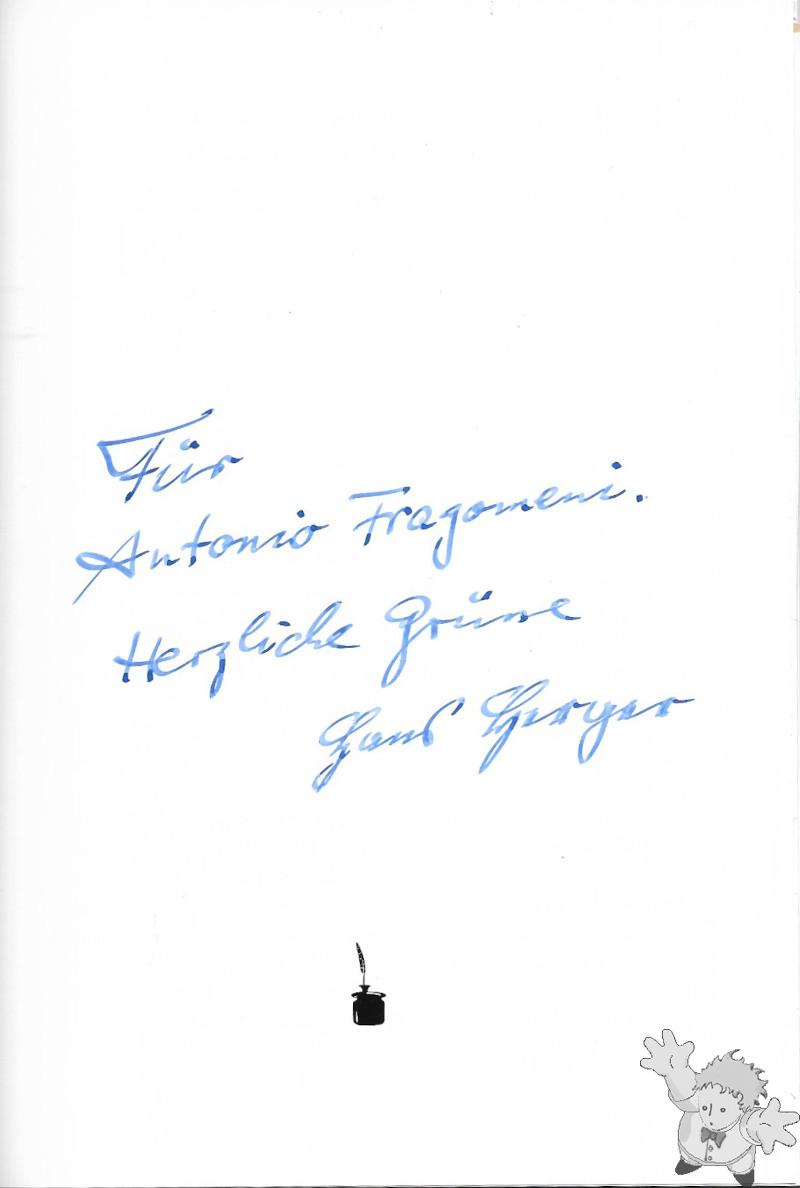 Für
Antonio Fragomeni.
Herzliche Grüsse
Hans Herger